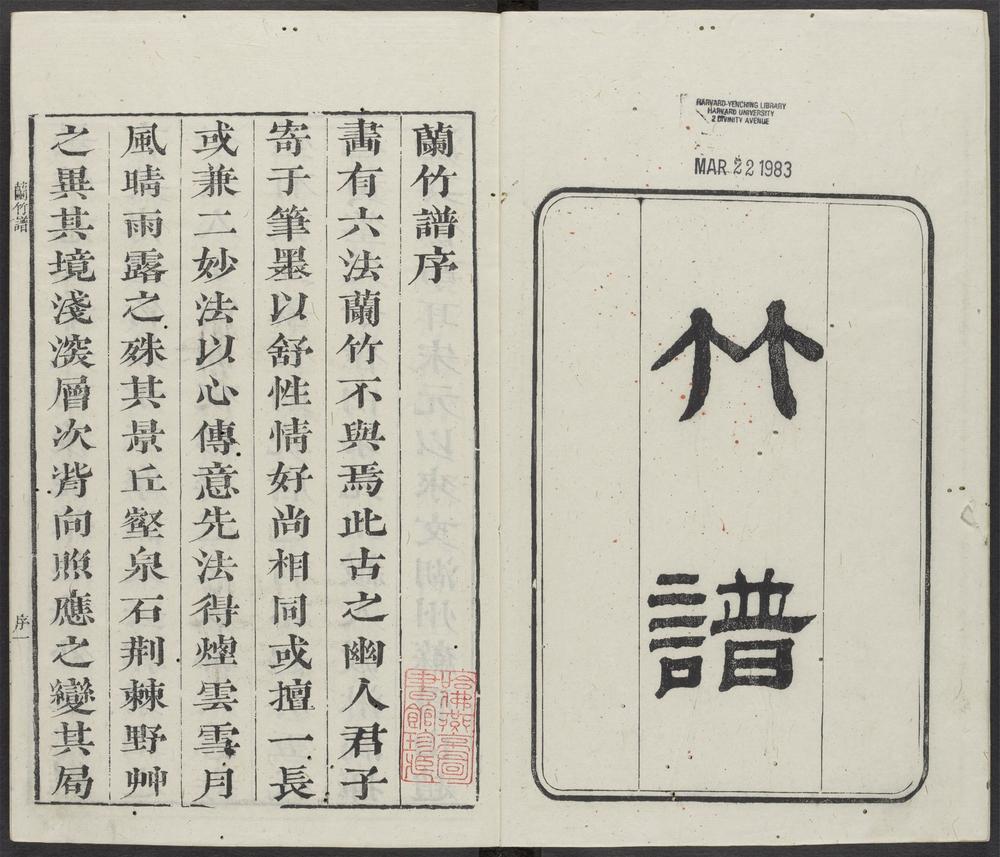 HARVARD-YENCHING LIBRARY
HARVARD UNIVERSITY
2 DIVINITY AVENUE
MAR 22 1983
竹譜
蘭竹譜序
畵有六法蘭竹不與焉此古之幽人君子
寄于筆墨以舒性情好尚相同或擅一長
或兼二妙法以心傳意先法得煙雲雪月
風晴雨露之殊其景丘壑泉石荆棘野艸
之異其境淺深層次背向照應之變其局
哈佛燕京圖書館珍藏
蘭竹譜
序一